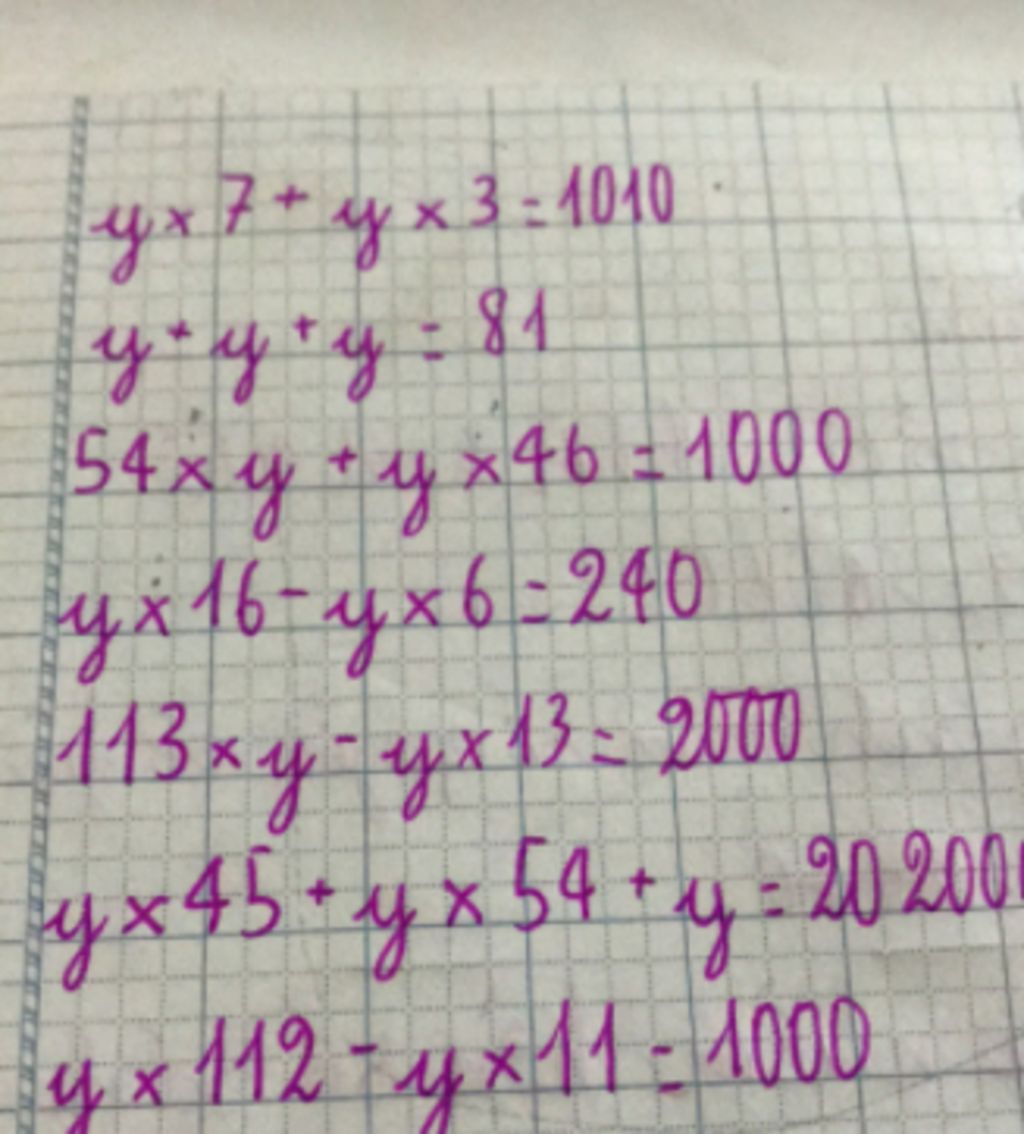 y × 7 + y × 3 = 1010
y + y + y = 81
54 × y + y × 46 = 1000
y × 16 - y × 6 = 240
113 × y - y × 13 = 2000
y × 45 + y × 54 + y = 20 200
y × 112 - y × 11 = 1000